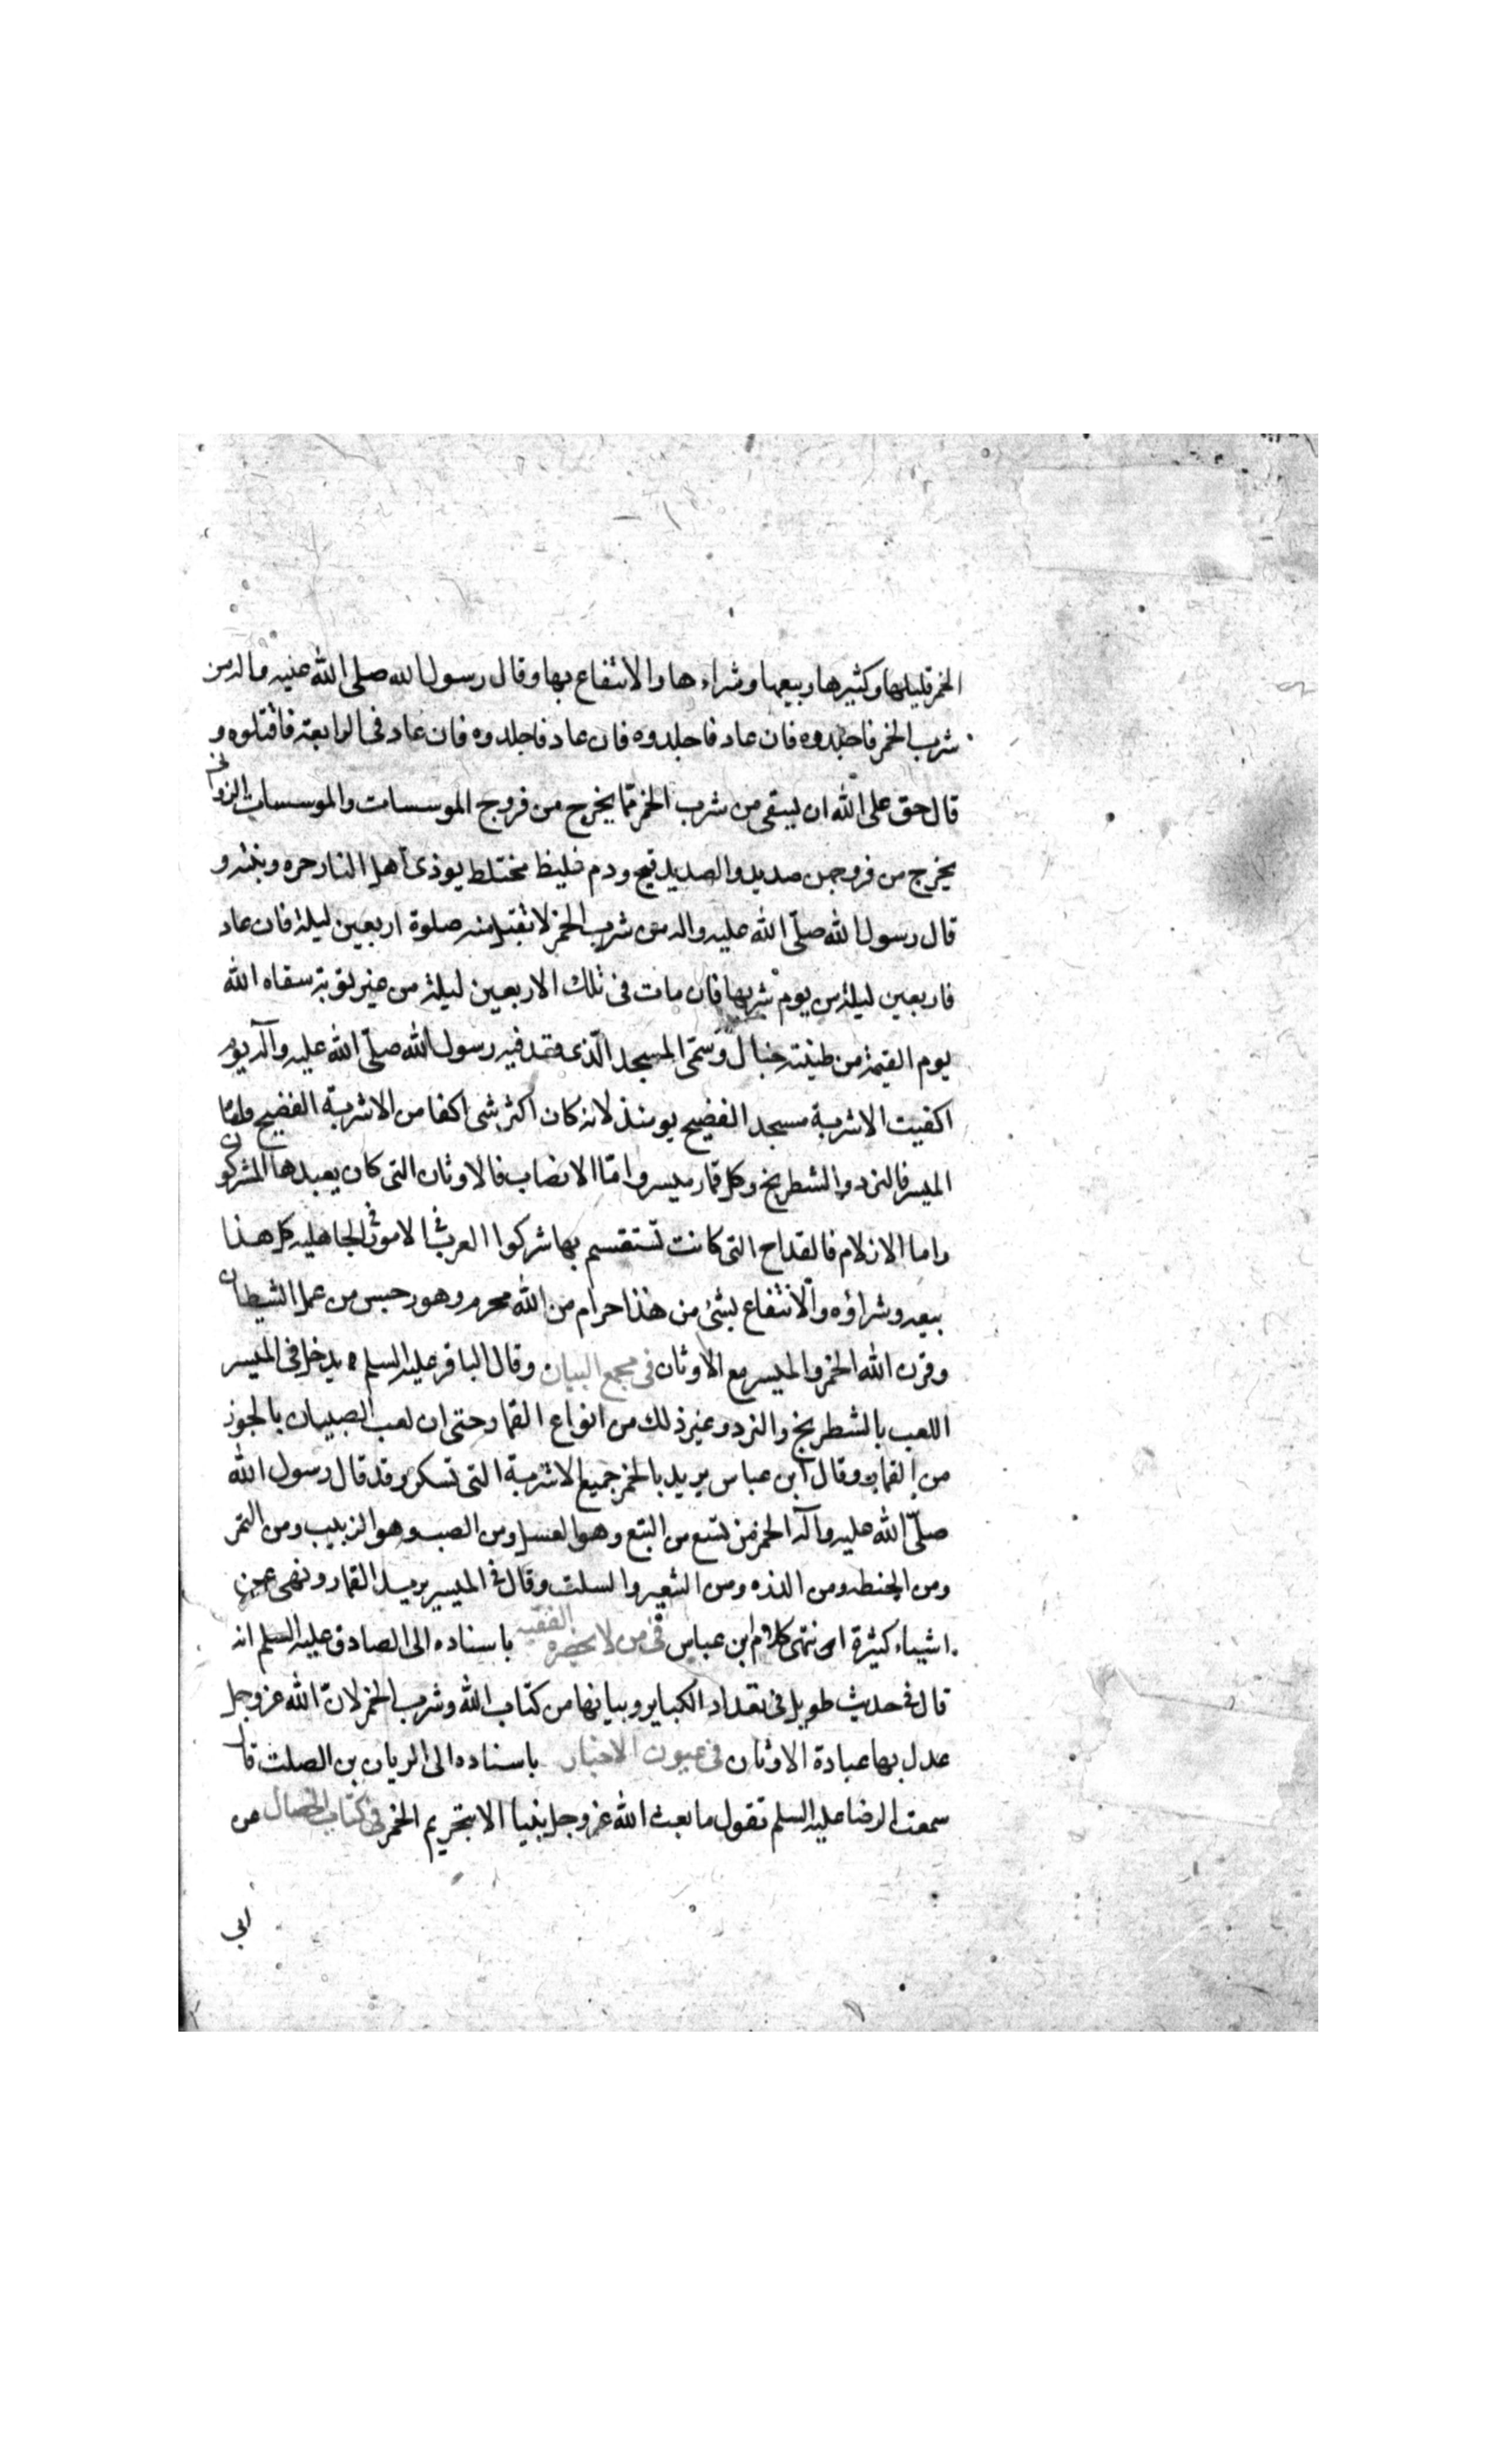 الخمر قليلها وكثيرها وبيعها وشراءها والانتفاع بها وقال رسول الله صلى الله عليه واله من
شرب الخمر فاجلدوه فان عاد فاجلدوه فان عاد فاجلدوه فان عاد فى الرابعة فاقتلوه و
قال حق على الله ان يسقى من شرب الخمر مما يخرج من فروج الموسسات والموسسات الزوانى
يخرج من فروجهن صديد والصديد قيح ودم غليظ مختلط يوذى اهل النار حره ونتنه و
قال رسول الله صلّى الله عليه واله من شرب الخمر لا تقبل منه صلوة اربعين ليلة فان عاد
فاربعين ليلة من يوم شربها فان مات فى تلك الاربعين ليلة من غير توبة سقاه الله
يوم القيمة من طينة خبال وسمّى المسجد الّذى قعد فيه رسول الله صلّى الله عليه وآله يوم
اكفيت الاشربة مسجد الفضيح يومئذ لانه كان اكثر شى اكفا من الاشربة الفضيح وامّا
الميسر فالنرد والشطرنج وكل قمار ميسر وامّا الانصاب فالاوثان التى كان يعبدها المشركون
واما الازلام فالقداح التى كانت تستقسم بها مشركوا العرب فى الامور فى الجاهليه كل هذا
بيعه وشراؤه والانتفاع بشئ من هذا حرام من الله محرم وهو رجس من عمل الشيطان
وقرن الله الخمر والميسر مع الاوثان فى مجمع البيان وقال الباقر عليه السلم يدخل فى الميسر
اللعب بالشطرنج والنرد وغير ذلك من انواع القمار حتى ان لعب الصبيان بالجوز
من القمار وقال ابن عباس يريد بالخمر جميع الاشربة التى تسكر وقد قال رسول الله
صلّى الله عليه وآله الخمر من تسع من البتع وهو العسل ومن العنب وهو الزبيب ومن التمر
ومن الحنطه ومن الذره ومن الشعير والسلت وقال فى الميسر يريد القمار ونهى عن
اشياء كثيرة انتهى كلام ابن عباس فى من لا يحضره الفقيه باسناده الى الصادق عليه السلم انه
قال فى حديث طويل فى تعداد الكباير وبيانها من كتاب الله وشرب الخمر لانّ الله عز وجل
عدل بها عبادة الاوثان فى عيون الاخبار باسناده الى الريان بن الصلت قال
سمعت الرضا عليه السلم تقول ما بعث الله عز وجل نبيا الا بتحريم الخمر فى كتاب الخصال عن
ابى